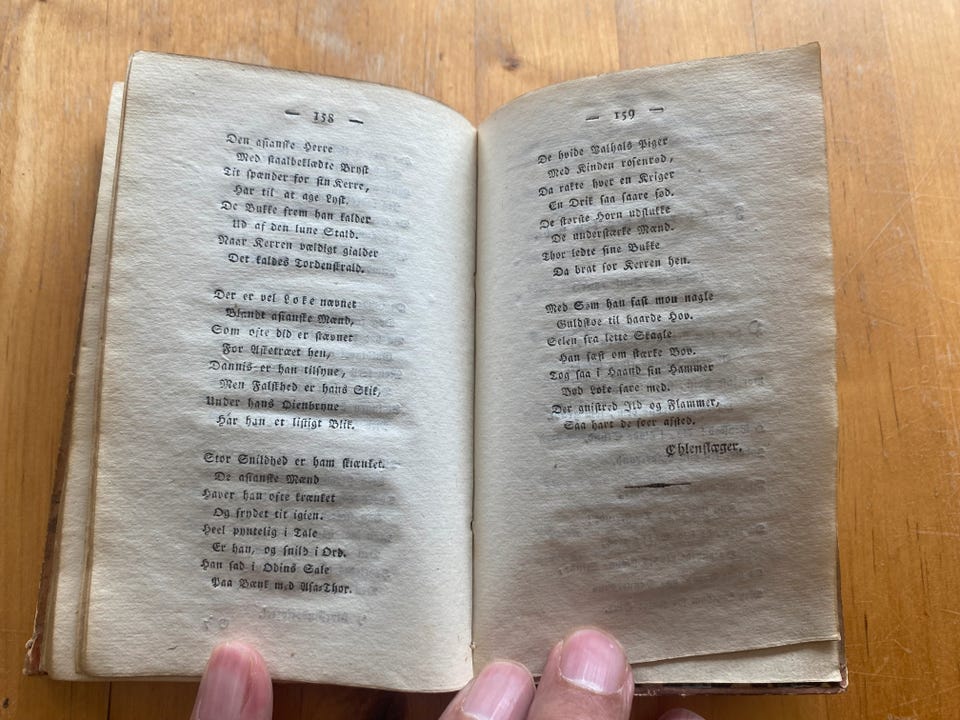 — 158 —
Den asianske Herre
Med staalbeklædte Bryst
Tit spænder for sin Kerre,
Har til at age Lyst.
De Bukke frem han kalder
Ud af den lune Stald.
Naar Kerren vældigt gialder
Det kaldes Tordenskrald.
Der er vel Loke nævnet
Blandt asianske Mænd,
Som ofte did er stævnet
For Asketræet hen,
Dannis er han tilsyne,
Men Falskhed er hans Skik,
Under hans Øienbryne
Har han et listigt Blik.
Stor Snildhed er ham skiænket.
De asianske Mænd
Haver han ofte krænket
Og frydet tit igien.
Heel pyntelig i Tale
Er han, og snild i Ord.
Han sad i Odins Sale
Paa Bænk med Asa-Thor.
— 159 —
De hvide Valhals Piger
Med Kinden rosenrød,
Da rakte hver en Kriger
En Drik saa saare sød.
De største Horn udslukte
De understærke Mænd.
Thor ledte sine Bukke
Da brat for Kerren hen.
Med Søm han fast mon nagle
Guldskoe til haarde Hov.
Selen fra lette Skagle
Han fæst om stærke Bov.
Tog saa i Haand sin Hammer
Bød Loke fare med.
Der gnistred Ild og Flammer,
Saa hart de foer afsted.
Øhlenslæger.